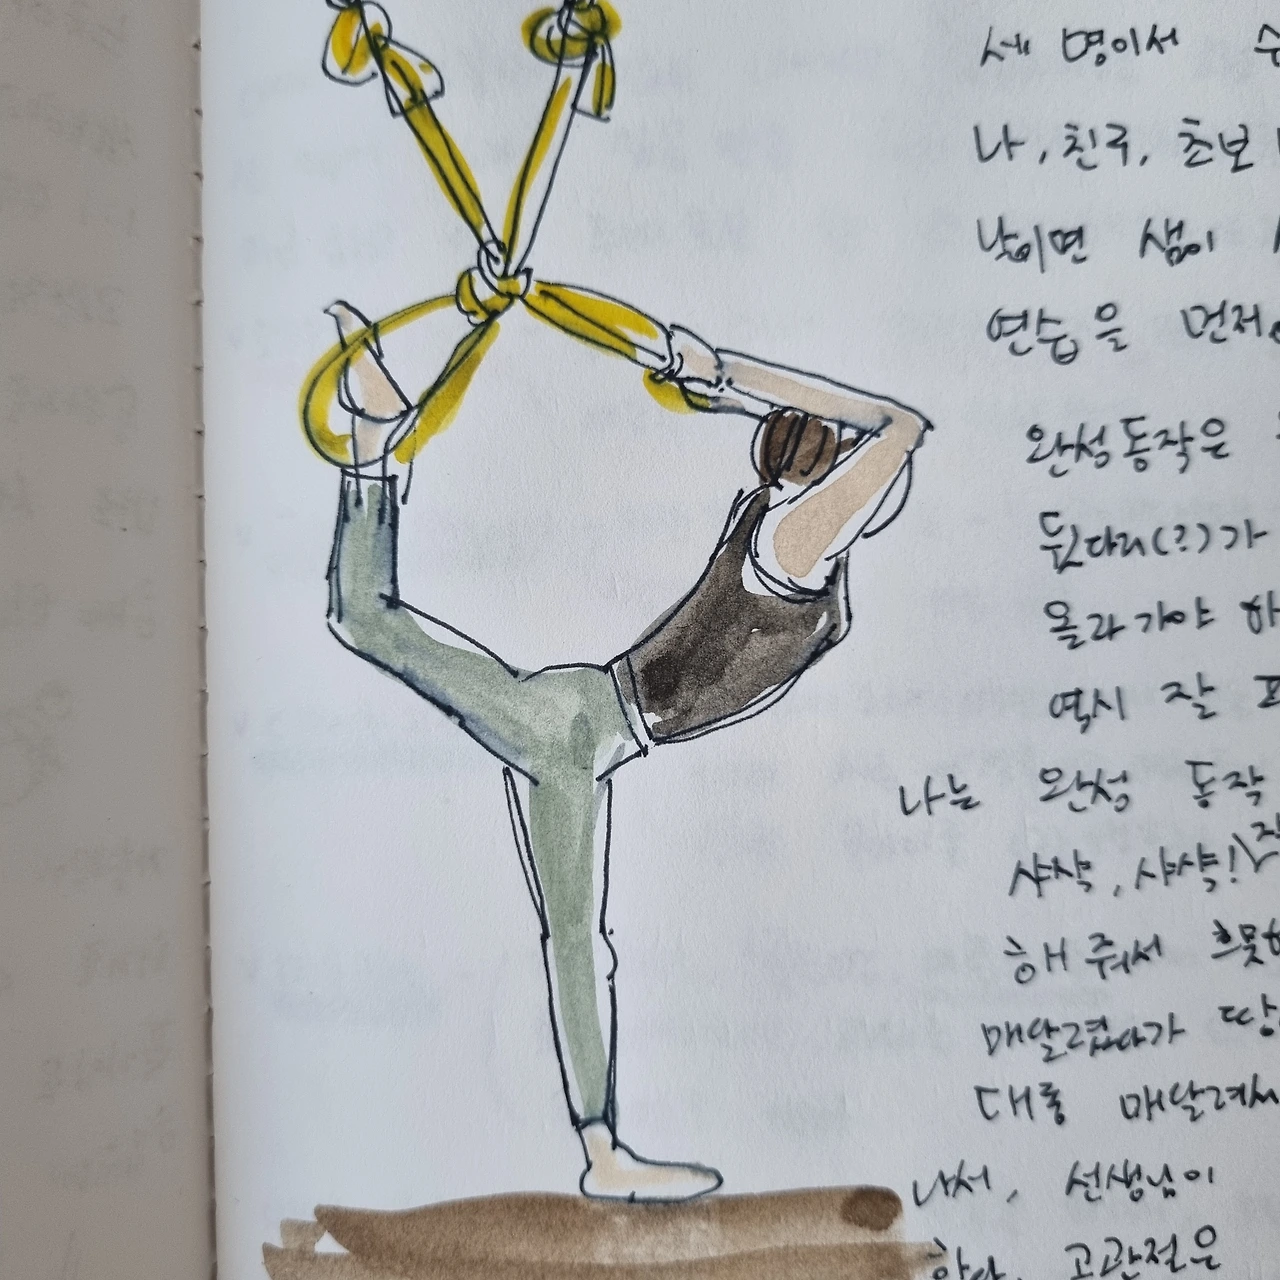 세 명이서
나, 친구, 초보
남이면 샘이
연습을 먼저
완성동작은
뒷다리(?)가
올라가야 하
역시 잘
나는 완성 동작
샤샥, 샤샥!
해 줘서 흐뭇
매달렸다가 땅
대롱 매달려서
나서, 선생님이
한다. 고관절은